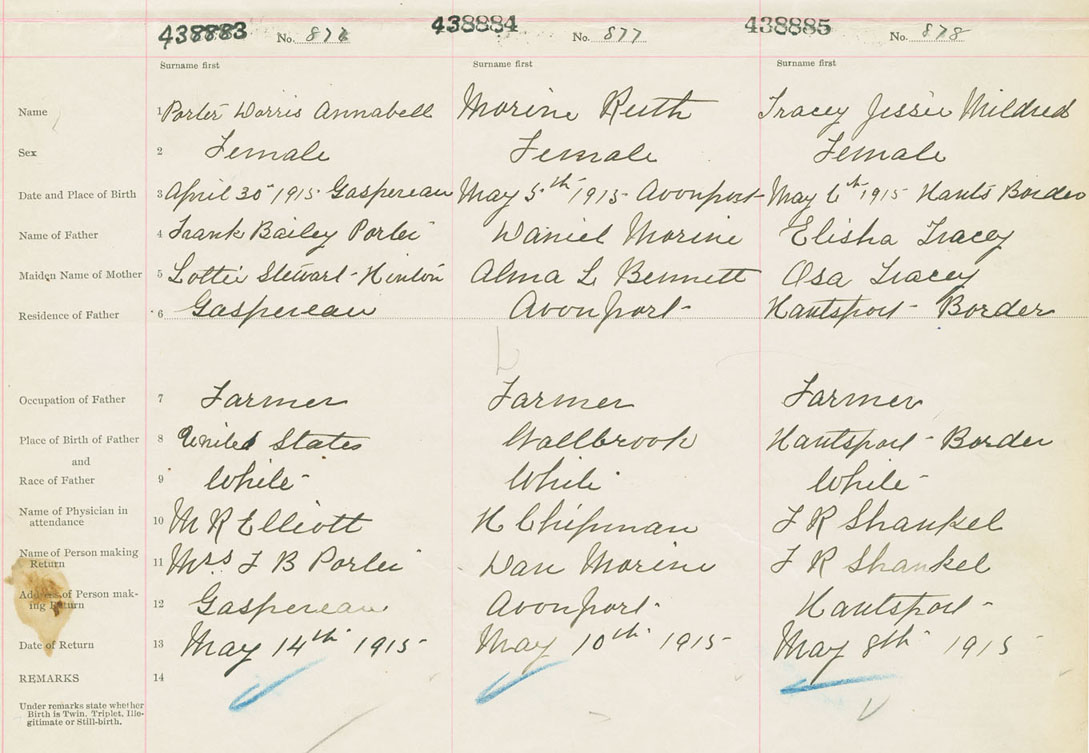 438883 No. 876 438884 No. 877 438885 No. 878
Surname first Surname first Surname first
Name 1 Porter Dorris Annabell Morine Ruth Tracey Jessie Mildred
Sex 2 Female Female Female
Date and Place of Birth 3 April 30 1915 Gaspereau May 5th 1915 Avonport May 6th 1915 Hants Border
Name of Father 4 Frank Bailey Porter Daniel Morine Elisha Tracey
Maiden Name of Mother 5 Lottie Stewart-Hinton Alma L Bennett Osa Tracey
Residence of Father 6 Gaspereau Avonport Hantsport - Border
Occupation of Father 7 Farmer Farmer Farmer
Place of Birth of Father 8 United States Wallbrook Hantsport - Border
and
Race of Father 9 White White White
Name of Physician in
attendance 10 M R Elliott H Chipman F R Shankel
Name of Person making
Return 11 Mrs F B Porter Dan Morine F R Shankel
Address of Person mak-
ing Return 12 Gaspereau Avonport Hantsport
Date of Return 13 May 14th 1915 May 10th 1915 May 8th 1915
REMARKS 14
Under remarks state whether
Birth is Twin, Triplet, Ille-
gitimate or Still-birth.